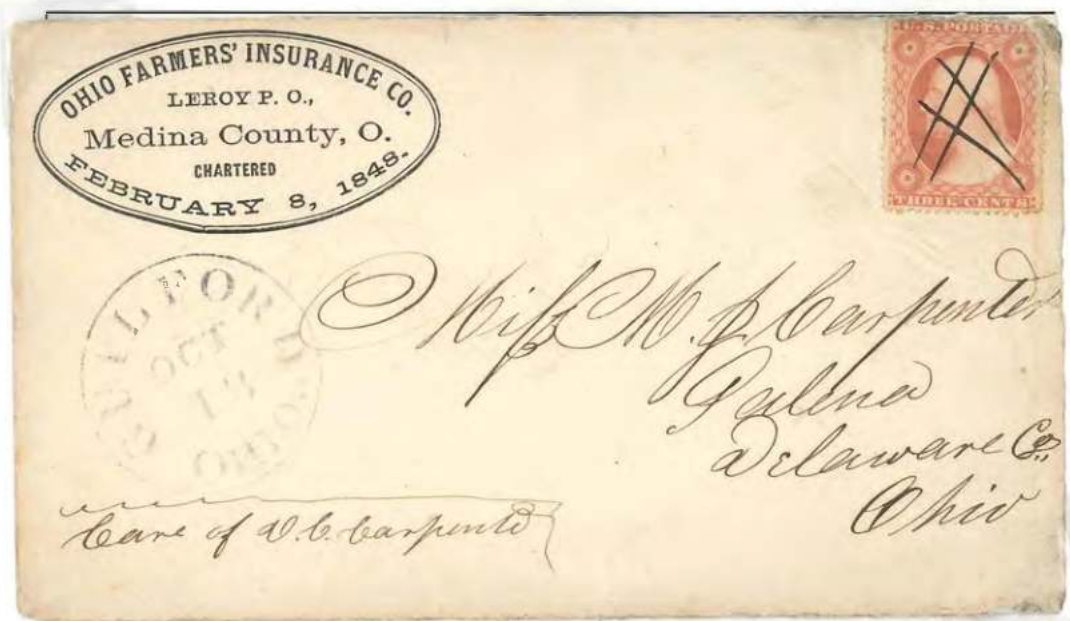 OHIO FARMERS' INSURANCE CO.
LEROY P. O.,
Medina County, O.
CHARTERED
FEBRUARY 8, 1848.
U.S. POSTAGE
THREE CENTS
GUILFORD
OCT
13
OHIO
Miss M. J. Carpenter
Galena
Delaware Co.,
Ohio
Care of D. C. Carpenter